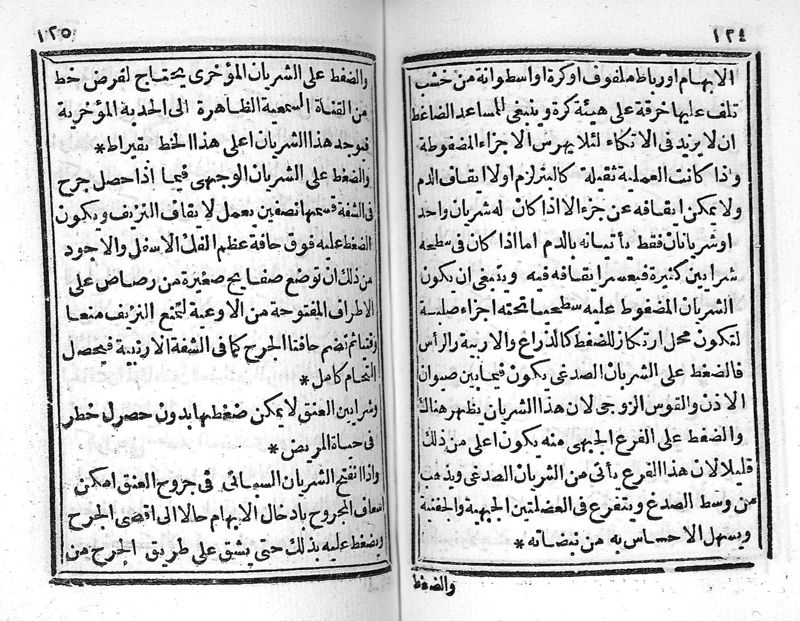 ١٢٤
الابهام او رباط ملفوف او كرة او اسطوانة من خشب
تلف عليها خرقة على هيئة كرة وينبغى للمساعد الضاغط
ان لا يزيد فى الاتكاء لئلا يهرس الاجزاء المضغوطة
واذا كانت العملية ثقيلة كالبتر لزم اولا ايقاف الدم
ولا يمكن ايقافه عن جزء الا اذا كان له شريان واحد
او شريانان فقط يأتيانه بالدم اما اذا كان فى سطحه
شرايين كثيرة فيعسر ايقافه فيه وينبغى ان يكون
الشريان المضغوط عليه سطحيا تحته اجزاء صلبة
لتكون محل ارتكاز للضغط كالذراع والاربية والرأس
فالضغط على الشريان الصدغى يكون فيما بين صيوان
الاذن والقوس الزوجى لان هذا الشريان يظهر هناك
والضغط على الفرع الجبهى منه يكون اعلى من ذلك
قليلا لان هذا الفرع يأتى من الشريان الصدغى ويذهب
من وسط الصدغ ويتفرع فى العضلتين الجبهية والجفنية
ويسهل الاحساس به من نبضاته *
والضغط
١٢٥
والضغط على الشريان المؤخرى يحتاج لفرض خط
من القناة السمعية الظاهرة الى الحدبة المؤخرية
فيوجد هذا الشريان اعلى هذا الخط بقيراط *
والضغط على الشريان الوجهى فيما اذا حصل جرح
فى الشفة قسمها نصفين يعمل لايقاف النزيف ويكون
الضغط عليه فوق حافة عظم الفك الاسفل والاجود
من ذلك ان توضع صفايح صغيرة من رصاص على
الاطراف المفتوحة من الاوعية لتمنع النزيف منعا
وقتيا ثم تضم حافتا الجرح كما فى الشفة الارنبية فيحصل
التحام كامل *
وشرايين العنق لا يمكن ضغطها بدون حصول خطر
فى حياة المريض *
واذا انفتح الشريان السباتى فى جروح العنق امكن
اسعاف المجروح بادخال الابهام حالا الى اقصى الجرح
ويضغط عليه بذلك حتى يشق على طريق الجرح من